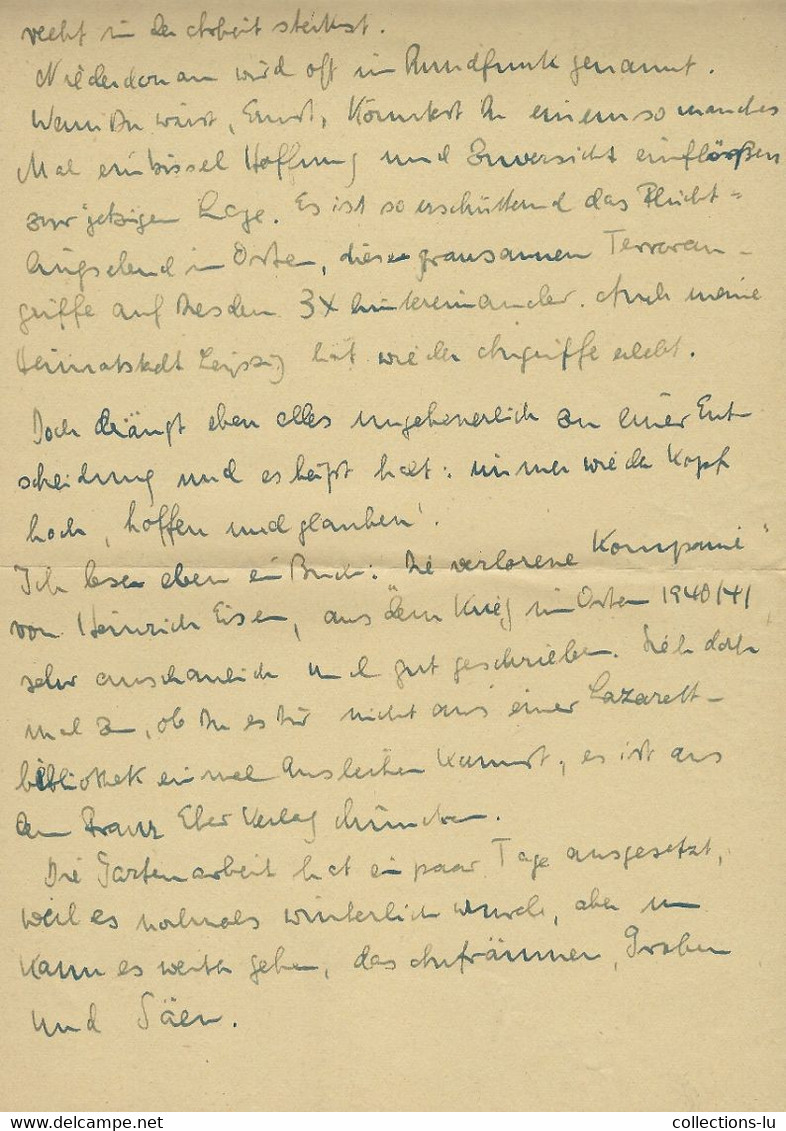 recht in der Arbeit steckst.
Niederdonau wird oft im Rundfunk genannt.
Wenn Du wärst, Ernst, könntest Du einem so manches
Mal ein bissel Hoffnung und Zuversicht einflößen
zur jetzigen Lage. Es ist so erschütternd das Flücht-
lingselend im Osten, diese grausamen Terroran-
griffe auf Dresden 3x hintereinander. Auch meine
Heimatstadt Leipzig hat wieder Angriffe erlebt.
Doch drängt eben alles ungeheuerlich zu einer Ent
scheidung und es heißt halt: immer wieder Kopf
hoch, hoffen und glauben!
Ich lese eben ein Buch: "Die verlorene Kompanie"
von Heinrich Eisen, aus dem Krieg im Osten 1940/41,
sehr anschaulich und gut geschrieben. Sieh doch
mal zu, ob Du es Dir nicht aus einer Lazarett-
bibliothek einmal ausleihen kannst, es ist aus
dem Franz Eher Verlag München.
Die Gartenarbeit hat ein paar Tage ausgesetzt,
weil es nochmals winterlich wurde, aber nun
kann es weiter gehen, das Aufräumen, Graben
und Säen.
collections-lu